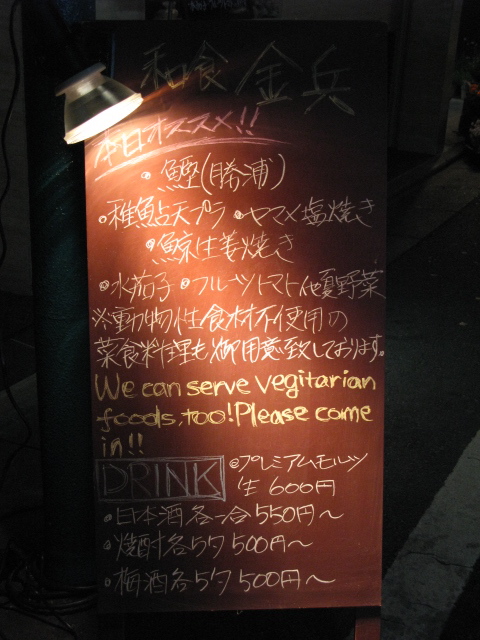 和食 金兵
本日オススメ!!
・鰹(勝浦)
・稚鮎天プラ ・ヤマメ塩焼き
・鯨生姜焼き
・水茄子 ・フルーツトマト他夏野菜
※動物性食材不使用の
菜食料理も御用意致しております。
We can serve vegitarian
foods, too! Please come
in!!
DRINK ・プレミアムモルツ
生 600円
・日本酒各一合 550円〜
・焼酎各5勺 500円〜
・梅酒各5勺 500円〜